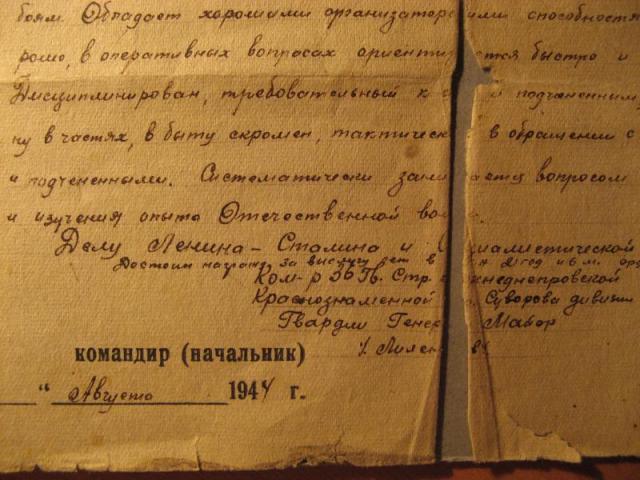 боям. Обладает хорошими организаторскими способностя
рошо, в оперативных вопросах ориентируется быстро и
Дисциплинирован, требовательный к себе и подчененным
ну в частях, в быту скромен, тактичен в обращении с
и подчененными. Систематически занимается вопросом
и изучения опыта Отечественной вой
Делу Ленина - Сталина и Социалистической
Достоин награжд. за выслугу лет в 21 год и 6 м. орд
Ком-р 36 Гв. Стр. Верхнеднепровской
Краснознаменной Суворова дивизии
Гвардии Генерал Майор
командир (начальник)
" Августа 1944 г.